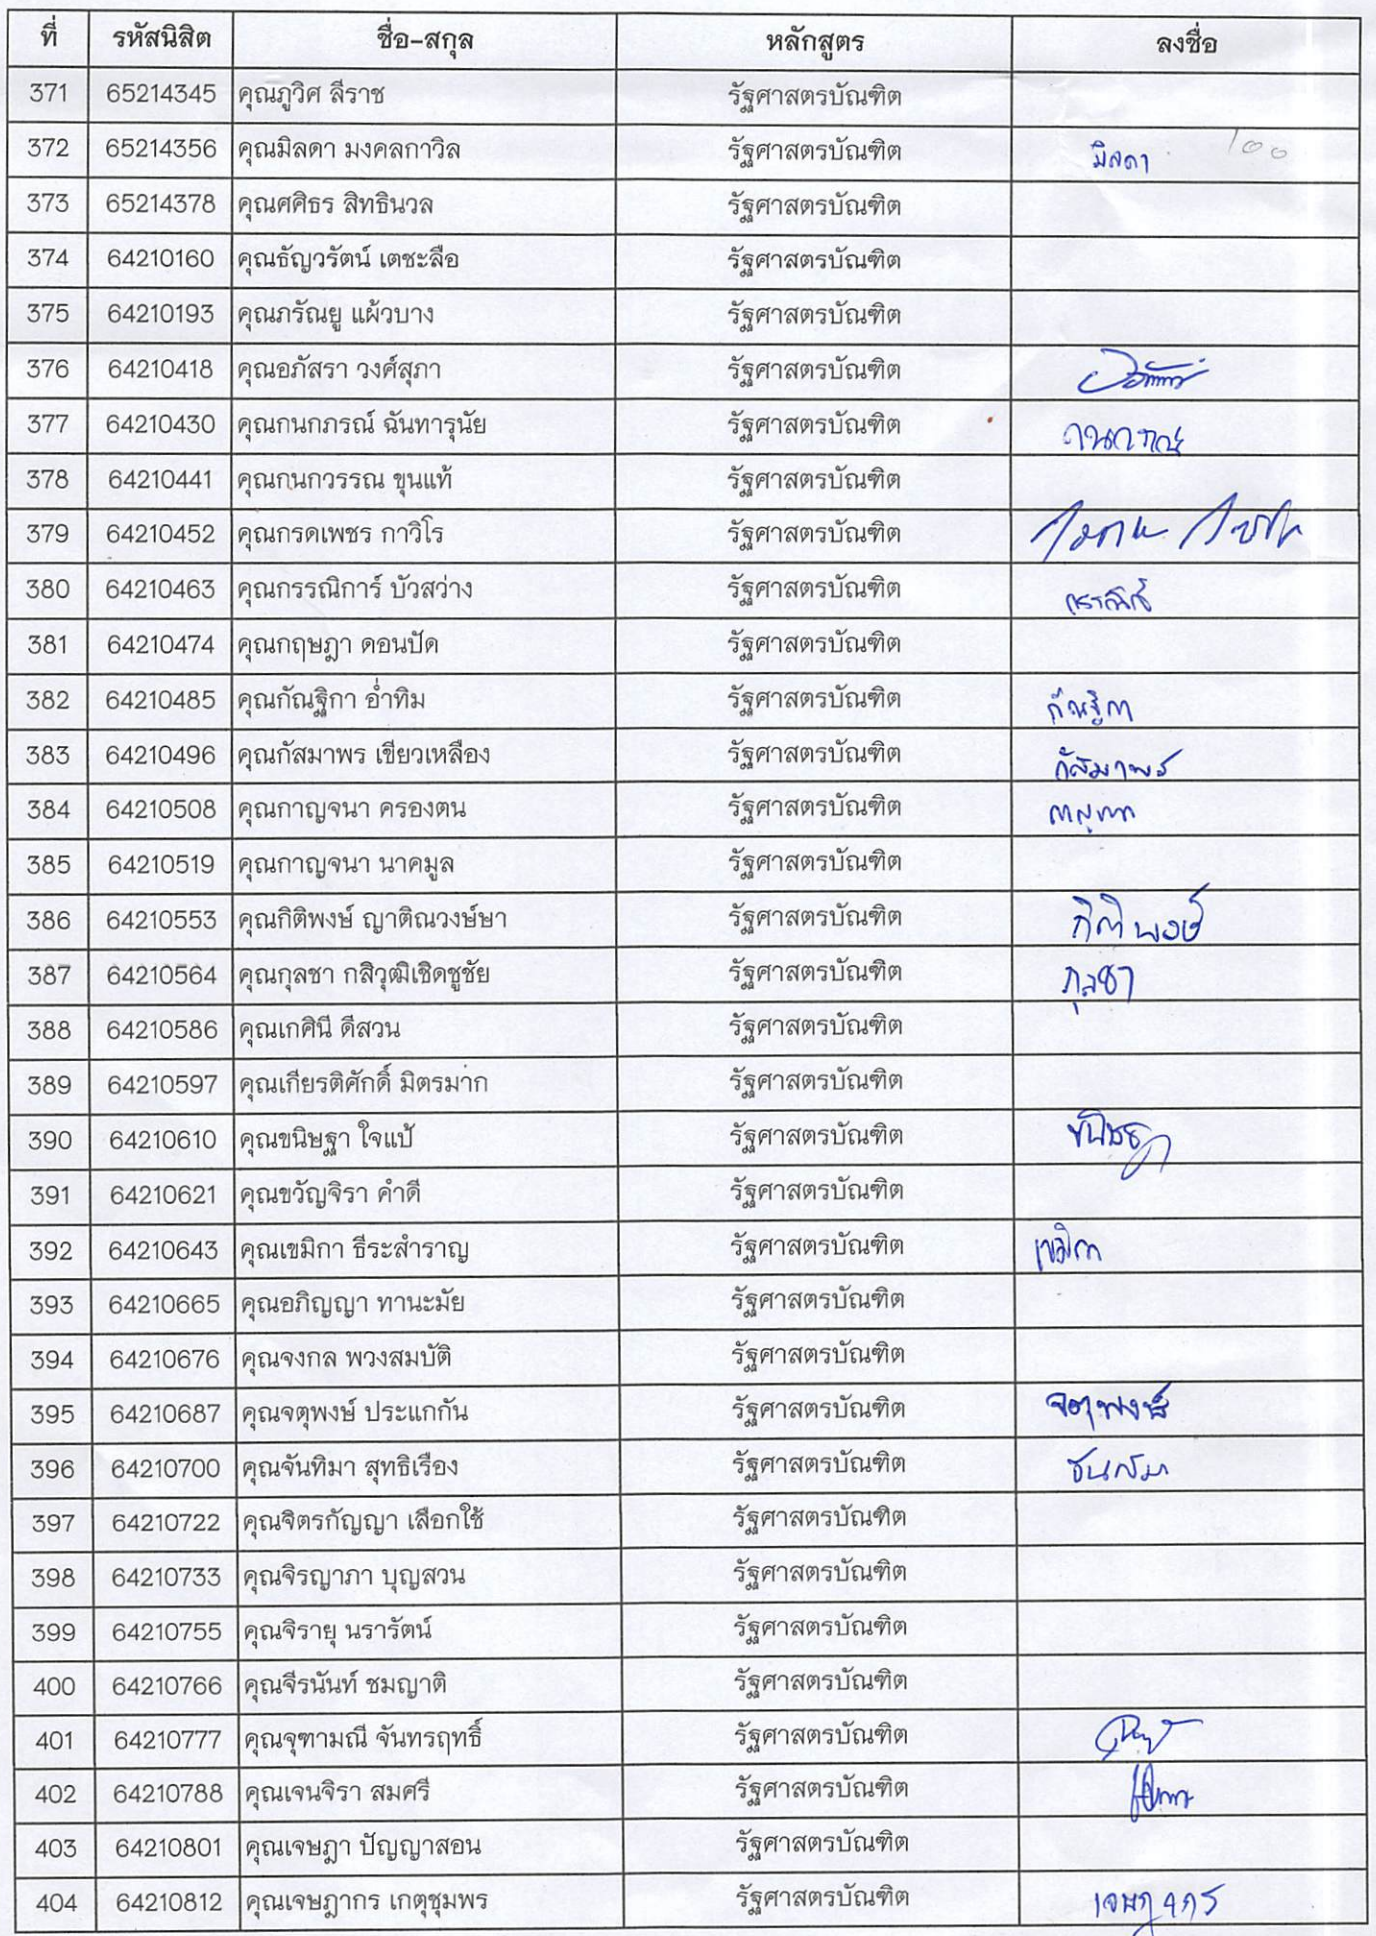 ที่ รหัสนิสิต ชื่อ-สกุล หลักสูตร ลงชื่อ
371 65214345 คุณภูวิศ ลีราช รัฐศาสตรบัณฑิต
372 65214356 คุณมิลดา มงคลกาวิล รัฐศาสตรบัณฑิต มิลดา 100
373 65214378 คุณศศิธร สิทธินวล รัฐศาสตรบัณฑิต
374 64210160 คุณธัญวรัตน์ เตชะลือ รัฐศาสตรบัณฑิต
375 64210193 คุณภรัณยู แผ้วบาง รัฐศาสตรบัณฑิต
376 64210418 คุณอภัสรา วงศ์สุภา รัฐศาสตรบัณฑิต
377 64210430 คุณกนกภรณ์ ฉันทารุนัย รัฐศาสตรบัณฑิต กนกภรณ์
378 64210441 คุณกนกวรรณ ขุนแท้ รัฐศาสตรบัณฑิต
379 64210452 คุณกรดเพชร กาวิโร รัฐศาสตรบัณฑิต
380 64210463 คุณกรรณิการ์ บัวสว่าง รัฐศาสตรบัณฑิต
381 64210474 คุณกฤษฎา ดอนปัด รัฐศาสตรบัณฑิต
382 64210485 คุณกัณฐิกา อ่ำทิม รัฐศาสตรบัณฑิต กัณฐิกา
383 64210496 คุณกัสมาพร เขียวเหลือง รัฐศาสตรบัณฑิต กัสมาพร
384 64210508 คุณกาญจนา ครองตน รัฐศาสตรบัณฑิต กาญจนา
385 64210519 คุณกาญจนา นาคมูล รัฐศาสตรบัณฑิต
386 64210553 คุณกิติพงษ์ ญาติณวงษ์ษา รัฐศาสตรบัณฑิต กิติพงษ์
387 64210564 คุณกุลชา กสิวุฒิเชิดชูชัย รัฐศาสตรบัณฑิต กุลชา
388 64210586 คุณเกศินี ดีสวน รัฐศาสตรบัณฑิต
389 64210597 คุณเกียรติศักดิ์ มิตรมาก รัฐศาสตรบัณฑิต
390 64210610 คุณขนิษฐา ใจแป้ รัฐศาสตรบัณฑิต ขนิษฐา
391 64210621 คุณขวัญจิรา คำดี รัฐศาสตรบัณฑิต
392 64210643 คุณเขมิกา ธีระสำราญ รัฐศาสตรบัณฑิต เขมิกา
393 64210665 คุณอภิญญา ทานะมัย รัฐศาสตรบัณฑิต
394 64210676 คุณจงกล พวงสมบัติ รัฐศาสตรบัณฑิต
395 64210687 คุณจตุพงษ์ ประแกกัน รัฐศาสตรบัณฑิต จตุพงษ์
396 64210700 คุณจันทิมา สุทธิเรือง รัฐศาสตรบัณฑิต
397 64210722 คุณจิตรกัญญา เลือกใช้ รัฐศาสตรบัณฑิต
398 64210733 คุณจิรญาภา บุญสวน รัฐศาสตรบัณฑิต
399 64210755 คุณจิรายุ นรารัตน์ รัฐศาสตรบัณฑิต
400 64210766 คุณจีรนันท์ ชมญาติ รัฐศาสตรบัณฑิต
401 64210777 คุณจุฑามณี จันทรฤทธิ์ รัฐศาสตรบัณฑิต
402 64210788 คุณเจนจิรา สมศรี รัฐศาสตรบัณฑิต
403 64210801 คุณเจษฎา ปัญญาสอน รัฐศาสตรบัณฑิต
404 64210812 คุณเจษฎากร เกตุชุมพร รัฐศาสตรบัณฑิต เจษฎากร